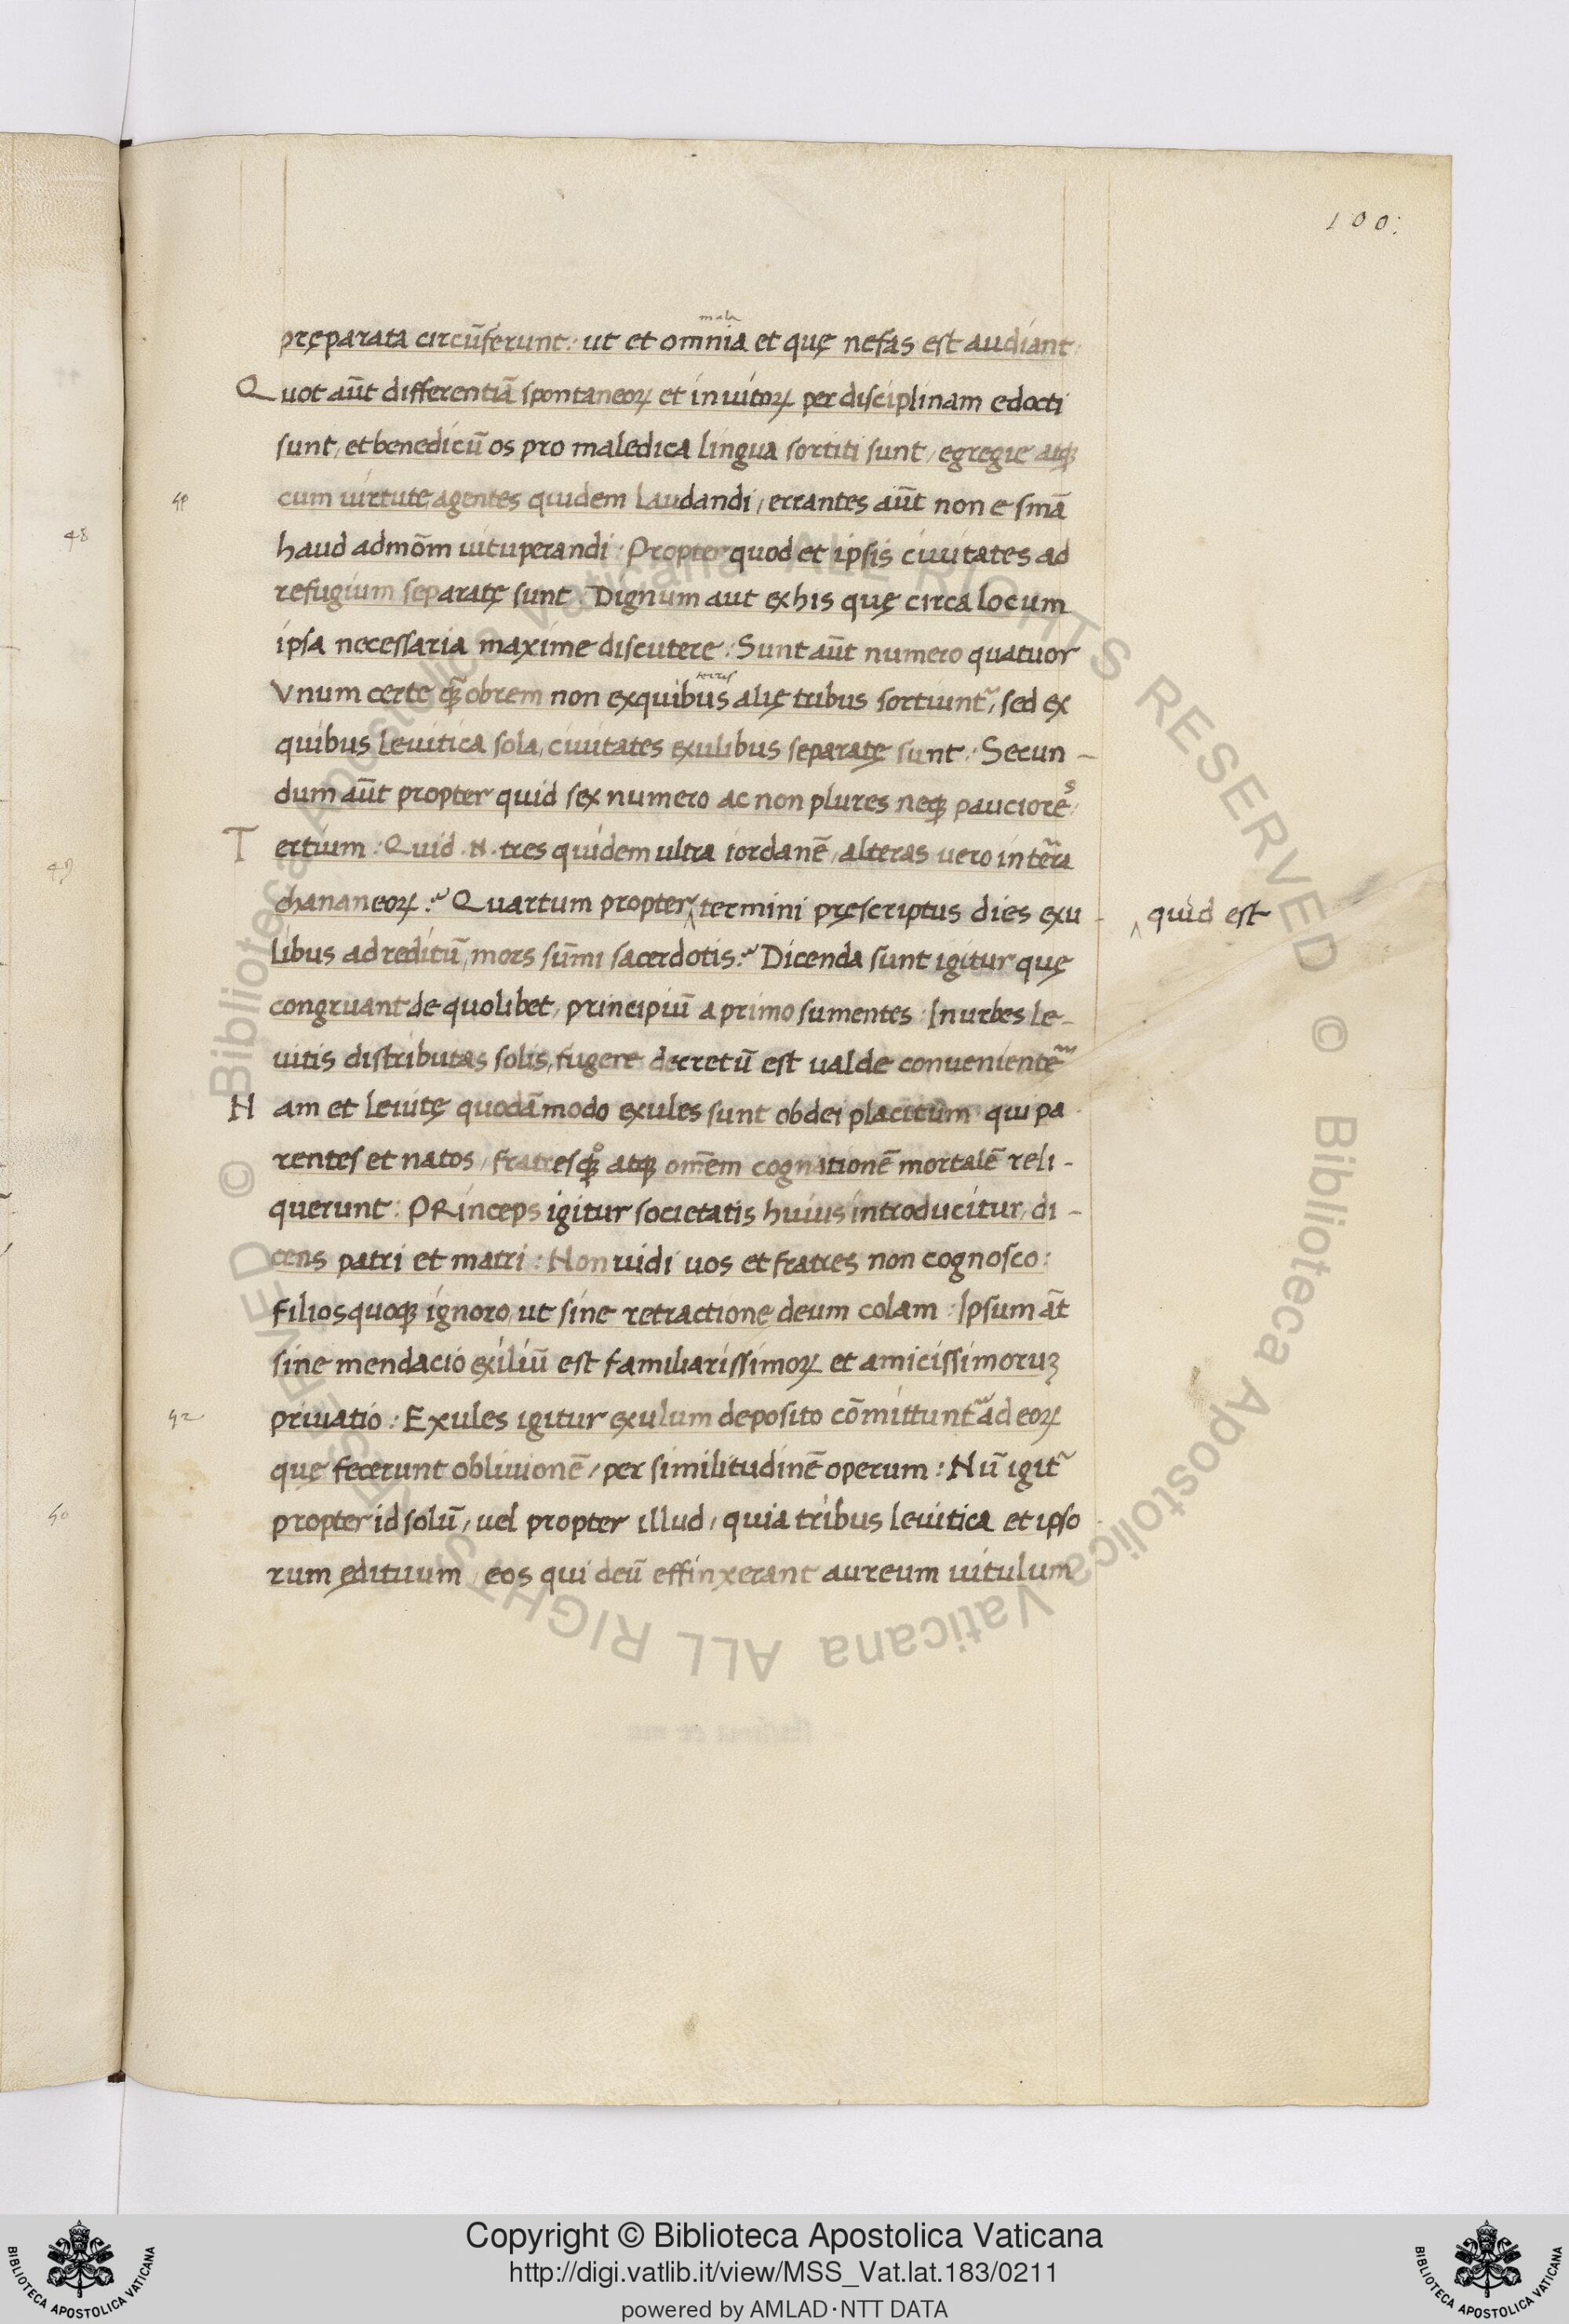 100:
mala
pręparata circũferunt: ut et omnia et quę nefas est audiant:
Quot aũt differentiã spontaneoꝝ et inuitoꝝ per disciplinam edocti
sunt, et benedicũ os pro maledica lingua sortiti sunt, egregie atqꝫ
cum uirtute agentes quidem laudandi, errantes aũt non e smã
haud admõm uituperandi: Propter quod et ipsis ciuitates ad
refugium separatę sunt: Dignum aut ex his quę circa locum
ipsa necessaria maxime discutere: Sunt aũt numero quatuor
terris
Vnum certe q̃ obrem non ex quibus alię tribus sortiunt᷑, sed ex
quibus leuitica sola, ciuitates exulibus separatę sunt: Secun-
dum aũt propter quid sex numero ac non plures neqꝫ pauciores:
Tertium: Quid .N. tres quidem ultra iordanẽ, alteras uero in ter̃a
chananeoꝝ: Quartum propter ‸ termini pręscriptus dies exu- ‸ quid est
libus ad reditũ, mors sũmi sacerdotis: Dicenda sunt igitur quę
congruant de quolibet, principiũ a primo sumentes: In urbes le-
uitis distributas solis, fugere decretũ est ualde conuenientẽ
Nam et leuitę quodãmodo exules sunt ob dei placitum qui pa-
rentes et natos, fratresqꝫ atqꝫ om̃em cognationẽ mortalẽ reli-
querunt: PRinceps igitur societatis huius introducitur, di-
cens patri et matri: Non uidi uos et fratres non cognosco:
Filios quoqꝫ ignoro, ut sine retractione deum colam: Ipsum ãt
sine mendacio exiliũ est familiarissimoꝝ et amicissimoruꝫ
52 priuatio: Exules igitur exulum deposito cõmittunt᷑ ad eoꝝ
quę fecerunt obliuionẽ, per similitudinẽ operum: Nũ igit᷑
propter id solũ, uel propter illud, quia tribus leuitica et ipso-
rum ędituum, eos qui deũ effinxerant aureum uitulum
48
49
50
© Biblioteca Apostolica Vaticana ALL RIGHTS RESERVED © Biblioteca Apostolica Vaticana ALL RIGHTS RESERVED
Copyright © Biblioteca Apostolica Vaticana
http://digi.vatlib.it/view/MSS_Vat.lat.183/0211
powered by AMLAD·NTT DATA
BIBLIOTECA APOSTOLICA VATICANA
BIBLIOTECA APOSTOLICA VATICANA